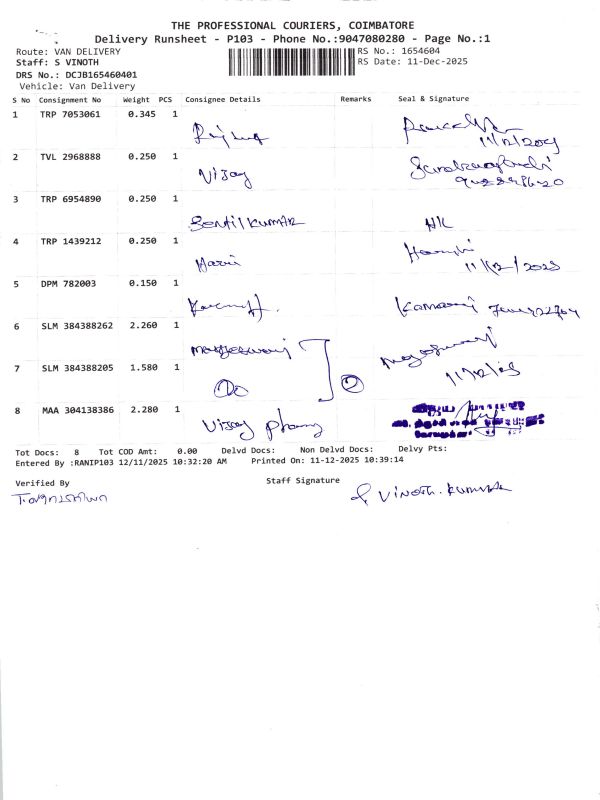 THE PROFESSIONAL COURIERS, COIMBATORE
Delivery Runsheet - P103 - Phone No.:9047080280 - Page No.:1
Route: VAN DELIVERY RS No.: 1654604
Staff: S VINOTH RS Date: 11-Dec-2025
DRS No.: DCJB165460401
Vehicle: Van Delivery
S No Consignment No Weight PCS Consignee Details Remarks Seal & Signature
1 TRP 7053061 0.345 1
11/12/2025
2 TVL 2968888 0.250 1
Vijay
3 TRP 6954890 0.250 1
SentilKUMAR
4 TRP 1439212 0.250 1
Harii
11/12/2025
5 DPM 782003 0.150 1
6 SLM 384388262 2.260 1
Mageswari
7 SLM 384388205 1.580 1
11/12/25
Do 2
8 MAA 304138386 2.280 1
Vijay
Tot Docs: 8 Tot COD Amt: 0.00 Delvd Docs: Non Delvd Docs: Delvy Pts:
Entered By :RANIP103 12/11/2025 10:32:20 AM Printed On: 11-12-2025 10:39:14
Verified By Staff Signature
S Vinoth.kumar